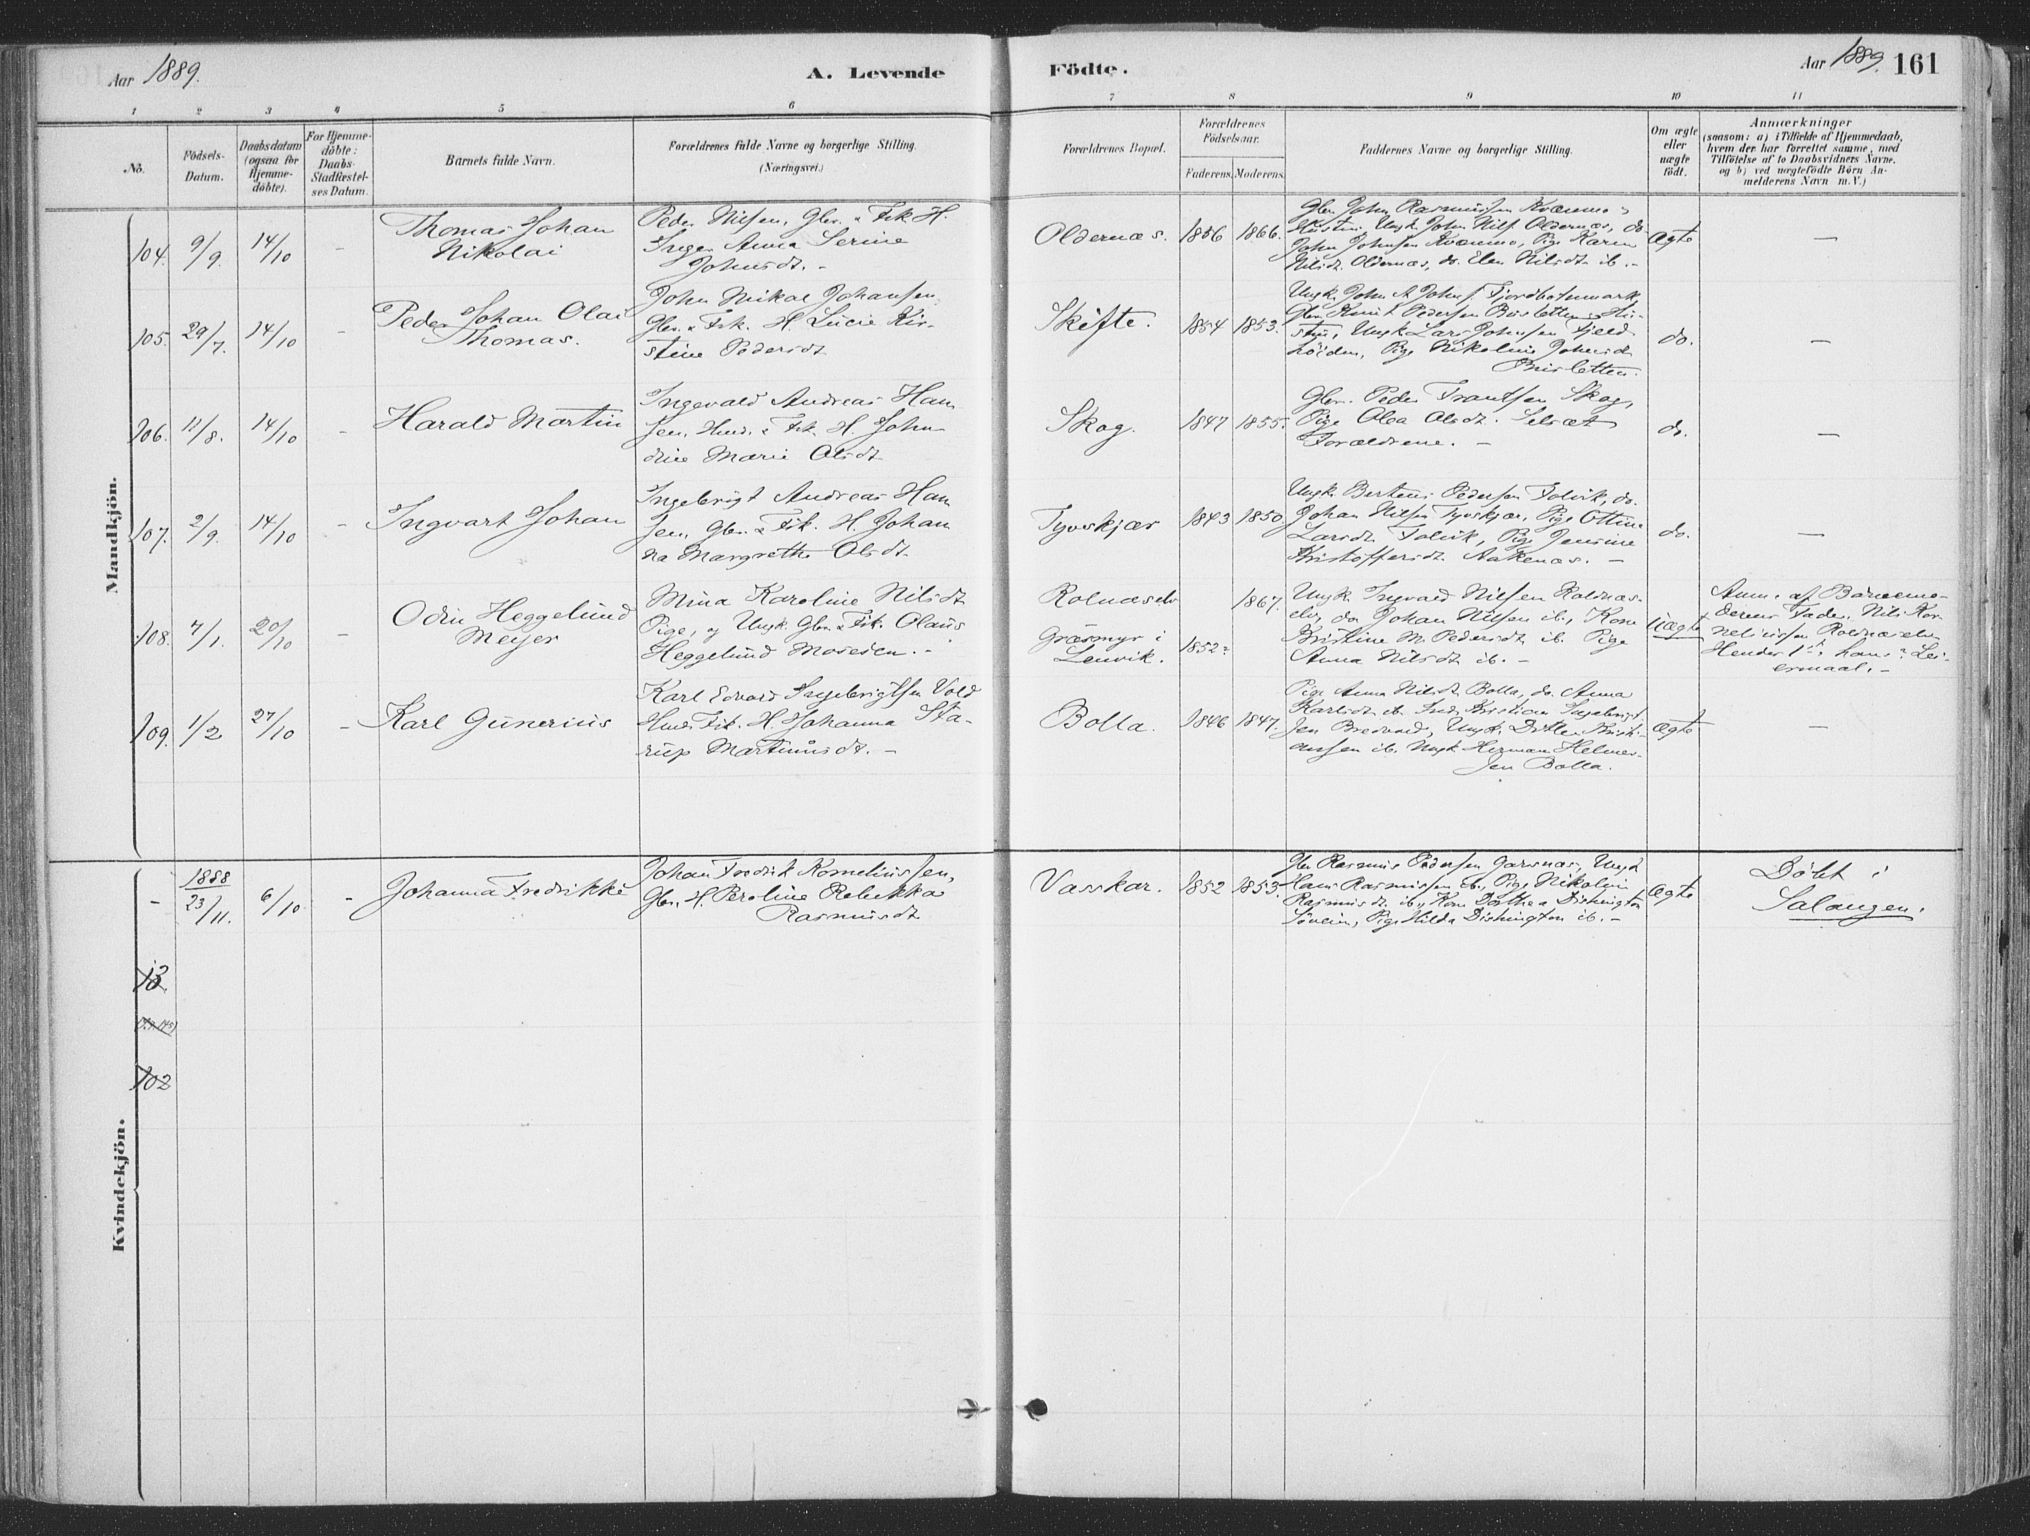 Aar 1889.
A. Levende
Födte.
Aar 1889. 161
1 2 3 4 5 6 7 8 9 10 11
No.
Födsels-
Datum.
Daabsdatum
(ogsaa for
Hjemme-
döbte).
For Hjemme-
döbte:
Daabs-
Stadfæstel-
ses Datum.
Barnets fulde Navn.
Forældrenes fulde Navne og borgerlige Stilling.
(Næringsvei.)
Forældrenes Bopæl.
Forældrenes
Födselsaar.
Faderens. Moderens.
Faddernes Navne og borgerlige Stilling.
Om ægte
eller
uægte
födt.
Anmærkninger
(saasom: a) i Tilfælde af Hjemmedaab,
hvem der har forrettet samme, med
Tilföielse af to Daabsvidners Navne.
og b) ved uægtefödte Börn An-
melderens Navn m. V.)
Mandkjön.
104. 9/9. 14/10 -
Thomas Johan
Nikolai
Peder Nilsen, Gbr. & Fsk. H.
Inger Anna Serine
Johnsdt. -
Oldernæs. 1856 1866.
Gbr. John Rasmussen Kvænmo &
Hustru, Ungk. John Nils. Oldernæs, do.
John Johnsen Kvænmo, Pige Karen
Nilsdt. Oldernæs, do. Elen Nilsdt. ib. -
Ægte —
105. 29/7. 14/10 -
Peder Johan Olai
Thomas.
John Nikal Johansen,
Gbr. & Fsk. H. Lucie Kir-
stine Pedersdt
Skifte. 1854 1853.
Ungk. John A. Johns. Fjordbotenmark
Gbr. Knut Pedersen Brisletten & Hu-
stru, Ungk. Lars Johnsen Fjeld-
höiden, Pige Nikoline Johnsdt.
Brisletten.
do. —
106. 11/8. 14/10 -
Harald Martin
Ingevald Andreas Han-
sen, Hmd. & Fsk. H. John-
dine Marie Olsdt
Skog. 1847 1855.
Gbr. Peder Frantsen Skog,
Pige Olea Olsdt. Selsæt
Forældrene. -
do. —
107. 2/9. 14/10 -
Ingvart Johan
Ingebrigt Andreas Han-
sen, Gbr. & Fsk. H. Johan-
na Margrethe Olsdt.
Tyvskjær 1843 1850.
Ungk. Berteus Pedersen Folvik, do.
Johan Nilsen Tyvskjær, Pige Ottine
Larsdt. Folvik, Pige Jensine
Kristoffersdt. Aakenæs. -
do. —
108. 7/1. 20/10 -
Odin Heggelund
Meyer
Mina Karoline Nilsdt
Pige, og Ungk. Gbr. & Fsk. Olaus
Heggelund Mosesen. -
Rolnæselv
Græsmyr i
Lenvik. 1852? 1867.
Ungk. Ingvald Nilsen Rolnæs-
elv, do. Johan Nilsen ib., Kone
Kristine M. Pedersdt. ib. Pige
Anna Nilsdt ib. -
Uægte
Anm. af Barnemo-
derens Fader Nils Kor-
neliussen Rolnæselv
Hendes 1ste hans ? Lei-
ermaal. -
109. 1/2 27/10 -
Karl Gunerius
Karl Edvard Ingebrigtsen Vold
Hmd. Fsk. H. Johanna Sta-
rup Martinusdt. -
Bolla. 1846 1847.
Pige Anna Nilsdt Bolla, do. Anna
Karlsdt. ib. Ind. Kristian Ingebrigt-
sen Bredvad, Ungk. Ditlev Kristi-
anssen ib. Ungk. Herman Helmer-
sen Bolla.
Ægte —
Kvindekjön.
- 1888
23/11. 6/10 -
Johanna Fredrikke
Johan Fredrik Korneliussen,
Gbr. H. Peroline Rebekka
Rasmusdt
Vasskar. 1852 1853.
Gbr. Rasmus Pedersen Garsnæs, Ungk
Hans Rasmussen ib., Pige Nikolvin
Rasmusdt ib., Kone Dorthea Dishington
Söveien, Pige Hilda Dishington ib. -
Ægte
Döbt i
Salangen.
13.
102